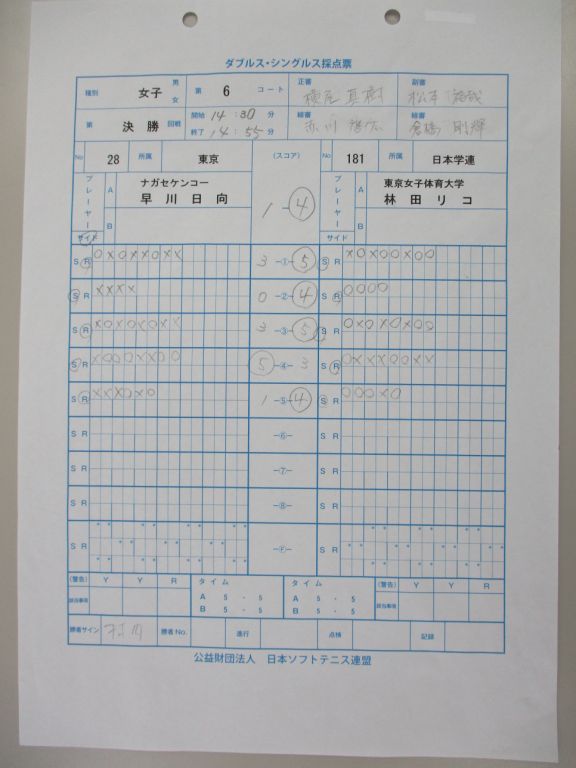 ダブルス・シングルス採点票
種別 女子 男 女 第 6 コート 正審 横尾 真樹 副審 松本
第 決勝 回戦 開始 14:30 分 終了 14:55 分 線審 線審 倉橋
No 28 所属 東京 (スコア) No 181 所属 日本学連
プレーヤー A ナガセケンコー 早川日向 1 - 4 プレーヤー A 東京女子体育大学 林田リコ
B B
サイド サイド
S R O X O X X O X X 3 -①- 5 S R X O X O O X O O
S R X X X X 0 -②- 4 S R O O O O
S R X O X O X O X X 3 -③- 5 S R O X O X O X O O
S R X O O O X X O O 5 -④- 3 S R O X X X O O X X
S R X X X O X 1 -⑤- 4 S R O O O X O
S R -⑥- S R
S R -⑦- S R
S R -⑧- S R
S R -Ⓕ- S R
(警告) Y Y R タイム タイム (警告) Y Y R
該当事項 A 5 - 5 A 5 - 5 該当事項
B 5 - 5 B 5 - 5
勝者サイン 勝者No. 進行 点検 記録
公益財団法人 日本ソフトテニス連盟